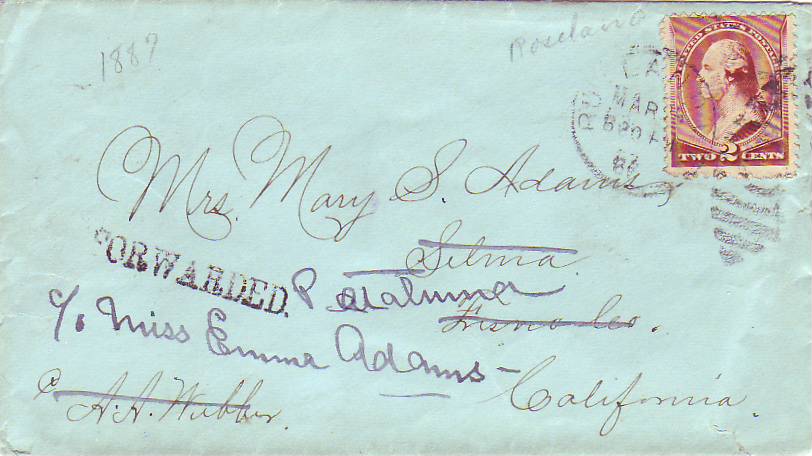 1887
UNITED STATES POSTAGE
TWO 2 CENTS
MAR
Mrs. Mary S. Adams
Selma
FORWARDED.
Petaluma
Fresno Co.
c/o Miss Emma Adams
California.
A. A. Webber.